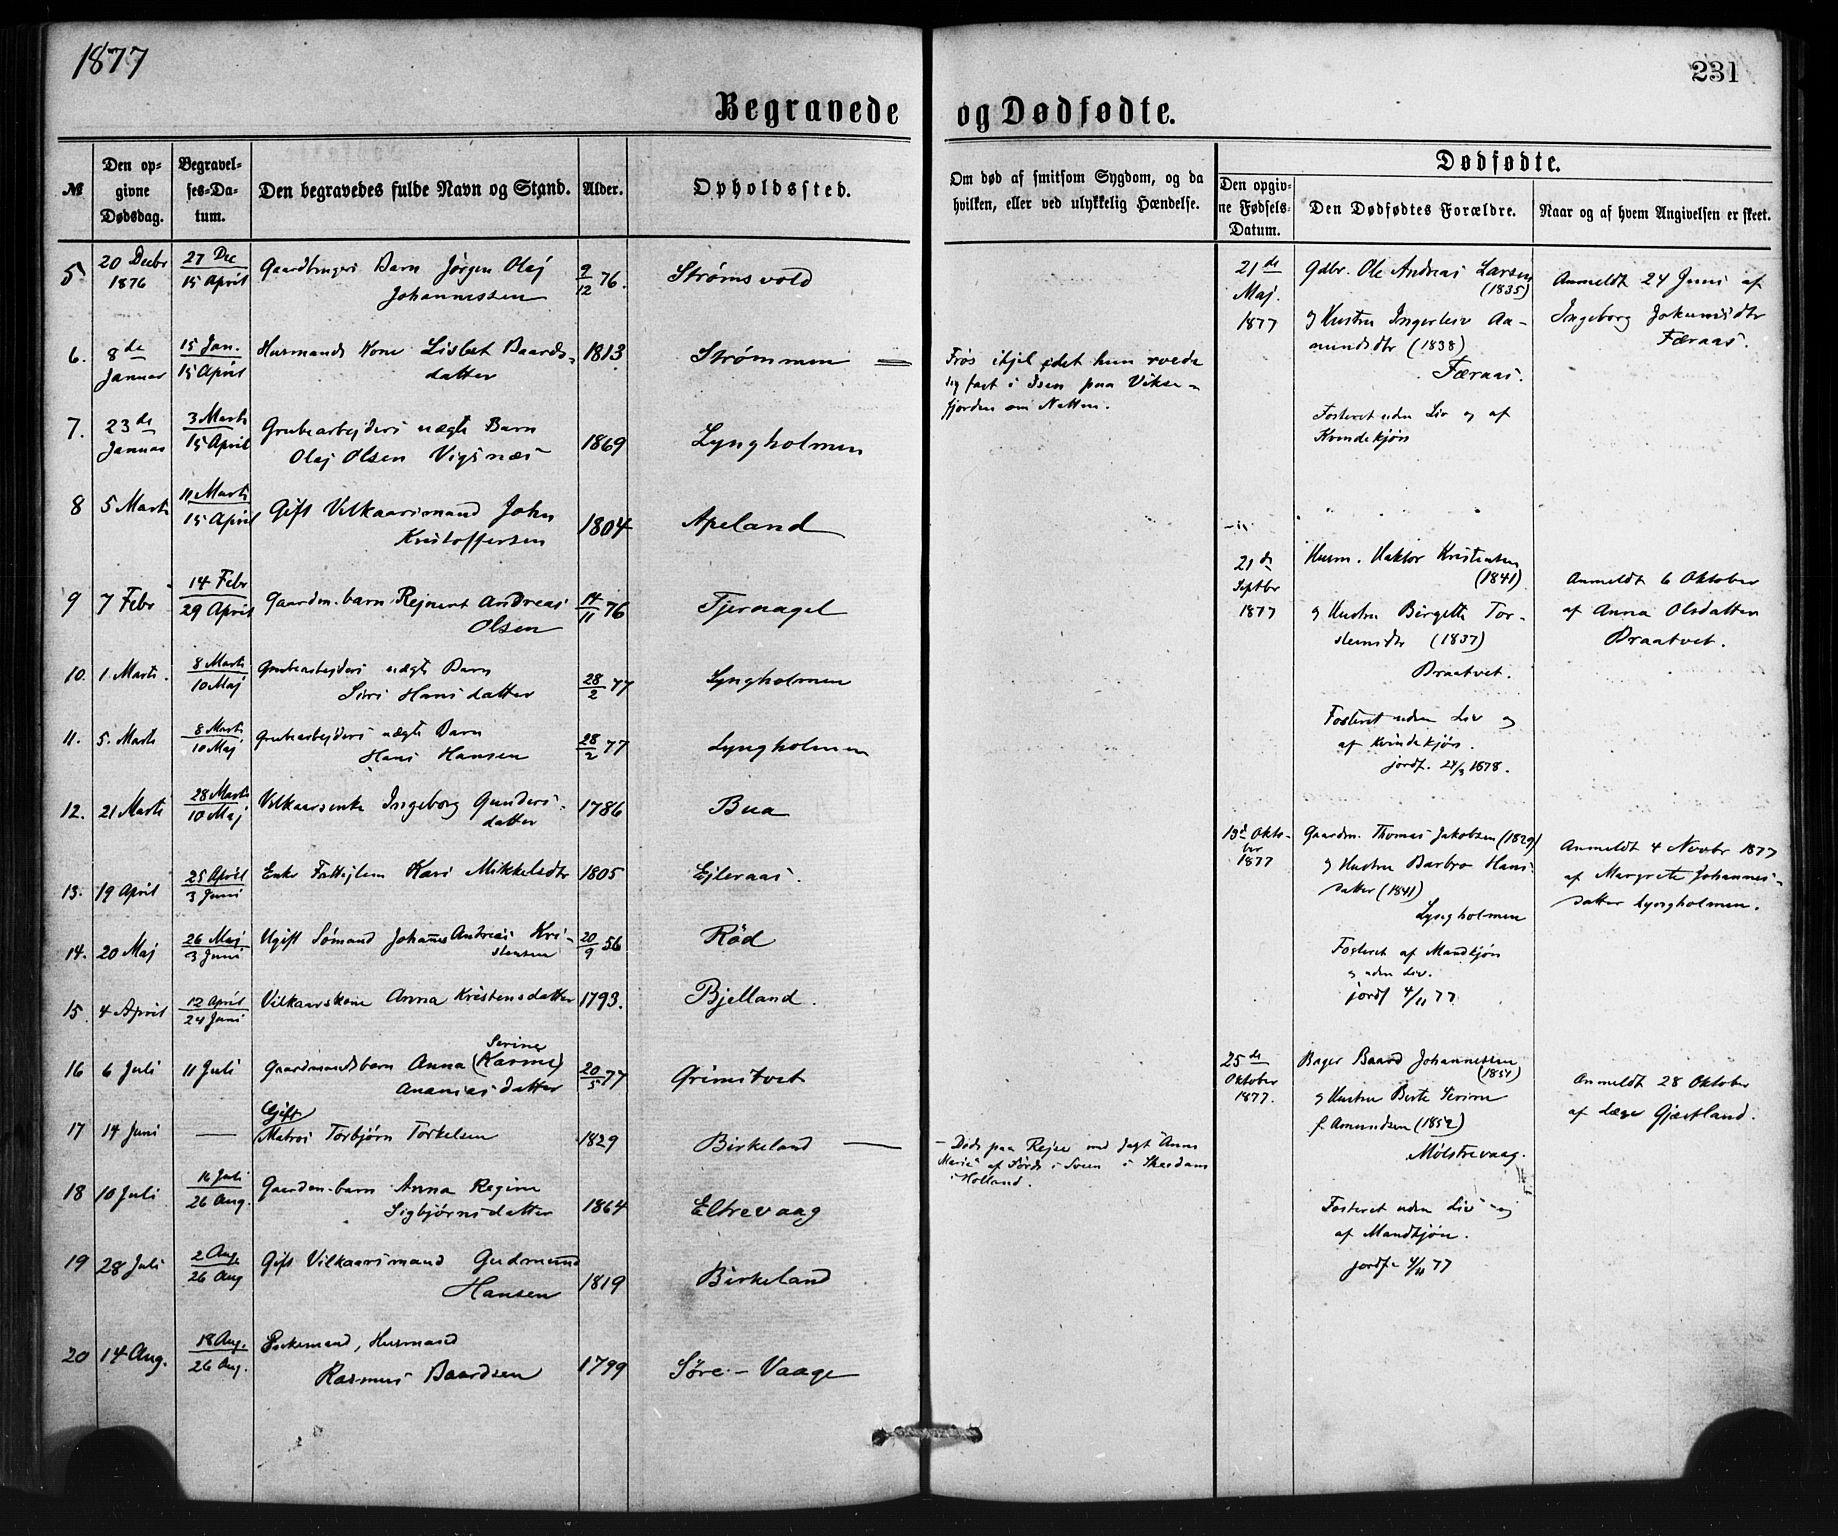 1877
231
Begravede og Dødfødte.
№
Den opgivne Dødsdag.
Begravelses-Datum.
Den begravedes fulde Navn og Stand.
Alder.
Opholdssted.
Om død af smitsom Sygdom, og da hvilken, eller ved ulykkelig Hændelse.
Dødfødte.
Den opgivne Fødsels-Datum.
Den Dødfødtes Forældre.
Naar og af hvem Angivelsen er skeet.
5 20 Decbr 1876 27 Dec 15 April Gaardbrugers Barn Jørgen Olaj Johannessen 9/12 76. Strømsvold
6. 8de Januar 15 Jan. 15 April Husmands Kone Lisbet Baardsdatter 1813 Strømmen = Frøs ihjel idet hun roede sig fast i Isen paa Viksefjorden om Natten.
7. 23de Januar 3 Marts 15 April Grubearbejders uægte Barn Olaj Olsen Vigsnæs 1869 Lyngholmen
8 5 Marts 11 Marts 15 April Gift Vilkaarsmand John Kristoffersen 1804 Apeland
9 7 Febr 14 Febr 29 April Gaardm. barn Rejnert Andreas Olsen 14/11 76 Tjernagel
10. 1. Marts. 8 Marts 10 Maj Grubearbejders uægte Barn Siri Hansdatter 28/2 77 Lyngholmen
11. 5. Marts 8 Marts 10 Maj Grubearbejders uægte Barn Hans Hansen 28/2 77 Lyngholmen
12. 21 Marts 28 Marts 10 Maj Vilkaarsenke Ingeborg Gundersdatter 1786 Bua
13. 19 April 25 April 3 Juni Enke Fattiglem Kari Mikkelsdtr 1805 Ejleraas.
14. 20 Maj 26 Maj 3 Juni Ugift Sømand Johannes Andreas Kristensen 20/9 56 Rød
15. 4 April 12 April 24 Juni Vilkaarskone Anna Kristensdatter 1793. Bjelland.
16 6 Juli 11 Juli Gaardmandsbarn Anna Serine (Karine) Ananiasdatter 20/5 77 Grimstvet
17 14 Juni — Gift Matros Torbjørn Torkelsen 1829 Birkeland — Døds paa Rejse med Jagt "Anna Marie" af Førde i Sveen i Skiedam i Holland.
18 10 Juli 16 Juli 26 Aug. Gaardm. barn Anna Regine Sigbjørnsdatter 1864 Eltrevaag
19 28 Juli 2 Aug 26 Aug Gift Vilkaarsmand Gudmund Hansen 1819 Birkeland
20 14 Aug. 18 Aug. 26 Aug. Enkemand, Husmand Rasmus Baardsen 1799 Søre-Vaage
21de Maj. 1877
Gdbr. Ole Andreas Larsen (1835)
og Hustru Ingerleiv Aamundsdtr (1838)
Færaas.
Fosteret uden Liv og af Kvindekjøn
Anmeldt 24 Juni af
Ingeborg Jokumsdtr
Færaas.
21de Septbr 1877
Husm. Haktor Kristensen (1841)
og Hustru Birgitte Torsteinsdtr (1837)
Braatvet.
Fosteret uden Liv og
af Kvindekjøn.
jordf. 24/3 1878.
Anmeldt 6 Oktober
af Anna Olsdatter
Braatvet.
13de Oktober 1877
Gaardm. Thomas Jakobsen (1829)
og Hustru Barbro Hansdatter (1841)
Lyngholmen
Fosteret af Mandkjøn
og uden Liv.
jordf 4/11 77
Anmeldt 4 Novbr 1877
af Margrete Johannesdatter Lyngholmen.
25de Oktober 1877.
Bager Baard Johannessen (1854)
og Hustru Berte Serine
f. Amundsen (1852)
Mølstrevaag.
Fosteret uden Liv og
af Mandkjøn.
jordf. 4/11 77
Anmeldt 28 Oktober
af Læge Gjestland.